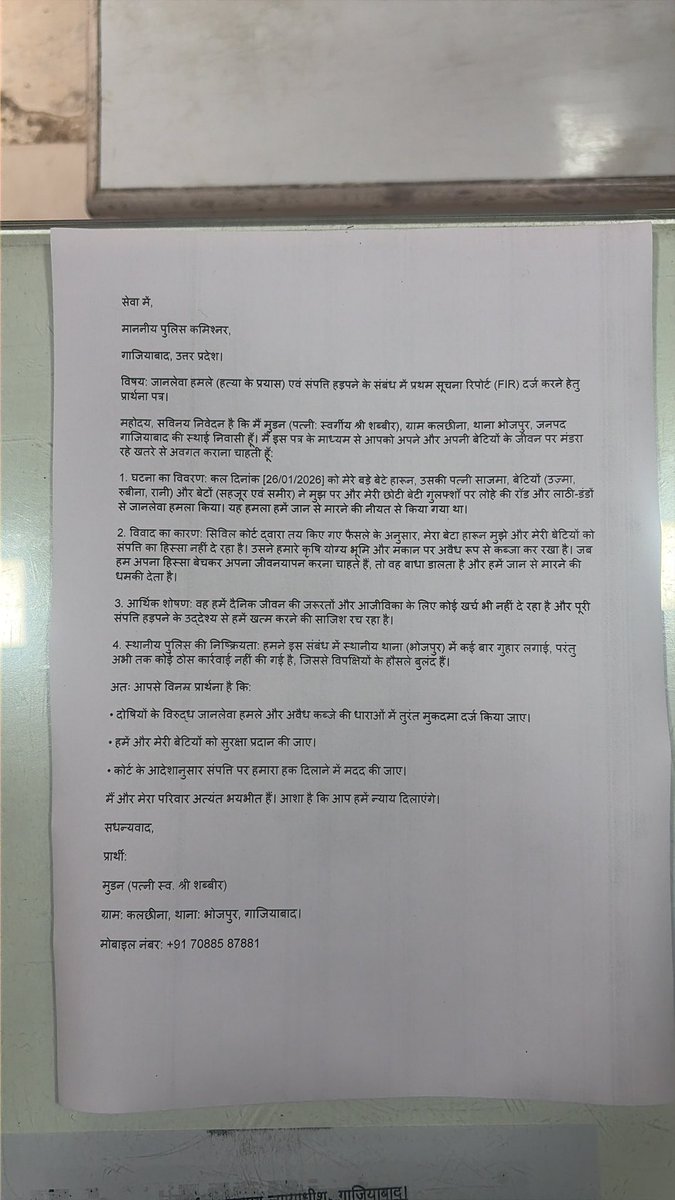 सेवा में,
माननीय पुलिस कमिश्नर,
गाजियाबाद, उत्तर प्रदेश।
विषय: जानलेवा हमले (हत्या के प्रयास) एवं संपत्ति हड़पने के संबंध में प्रथम सूचना रिपोर्ट (FIR) दर्ज करने हेतु
प्रार्थना पत्र।
महोदय, सविनय निवेदन है कि मैं मुडन (पत्नी: स्वर्गीय श्री शब्बीर), ग्राम कलछीना, थाना भोजपुर, जनपद
गाजियाबाद की स्थाई निवासी हूँ। मैं इस पत्र के माध्यम से आपको अपने और अपनी बेटियों के जीवन पर मंडरा
रहे खतरे से अवगत कराना चाहती हूँ:
1. घटना का विवरण: कल दिनांक [26/01/2026] को मेरे बड़े बेटे हारून, उसकी पत्नी साजमा, बेटियों (उज्मा,
रुबीना, रानी) और बेटों (सहजूर एवं समीर) ने मुझ पर और मेरी छोटी बेटी गुलफ्शाँ पर लोहे की रॉड और लाठी-डंडों
से जानलेवा हमला किया। यह हमला हमें जान से मारने की नीयत से किया गया था।
2. विवाद का कारण: सिविल कोर्ट द्वारा तय किए गए फैसले के अनुसार, मेरा बेटा हारून मुझे और मेरी बेटियों को
संपत्ति का हिस्सा नहीं दे रहा है। उसने हमारे कृषि योग्य भूमि और मकान पर अवैध रूप से कब्जा कर रखा है। जब
हम अपना हिस्सा बेचकर अपना जीवनयापन करना चाहते हैं, तो वह बाधा डालता है और हमें जान से मारने की
धमकी देता है।
3. आर्थिक शोषण: वह हमें दैनिक जीवन की जरूरतों और आजीविका के लिए कोई खर्च भी नहीं दे रहा है और पूरी
संपत्ति हड़पने के उद्देश्य से हमें खत्म करने की साजिश रच रहा है।
4. स्थानीय पुलिस की निष्क्रियता: हमने इस संबंध में स्थानीय थाना (भोजपुर) में कई बार गुहार लगाई, परंतु
अभी तक कोई ठोस कार्रवाई नहीं की गई है, जिससे विपक्षियों के हौसले बुलंद हैं।
अतः आपसे विनम्र प्रार्थना है कि:
• दोषियों के विरुद्ध जानलेवा हमले और अवैध कब्जे की धाराओं में तुरंत मुकदमा दर्ज किया जाए।
• हमें और मेरी बेटियों को सुरक्षा प्रदान की जाए।
• कोर्ट के आदेशानुसार संपत्ति पर हमारा हक दिलाने में मदद की जाए।
मैं और मेरा परिवार अत्यंत भयभीत हैं। आशा है कि आप हमें न्याय दिलाएंगे।
सधन्यवाद,
प्रार्थी:
मुडन (पत्नी स्व. श्री शब्बीर)
ग्राम: कलछीना, थाना: भोजपुर, गाजियाबाद।
मोबाइल नंबर: +91 70885 87881
गाजियाबाद।